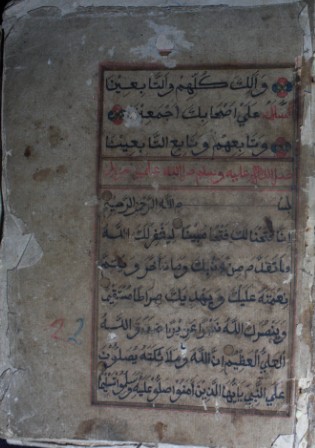 وءالك كلهم والتابعين
علي أصحابك أجمعين
وتابعهم وتابع التابعين
بسم الله الرحمن الرحيم
انا فتحنا لك فتحا مبينا ليغفر لك الله
ما تقدم من ذنبك وما تأخر ويتم
نعمته عليك ويهديك صراطا مستقيما
وينصرك الله نصرا عزيزا صدق الله
العلي العظيم ان الله وملائكته يصلون
علي النبي يأيها الذين ءامنوا صلوا عليه وسلموا تسليما
22